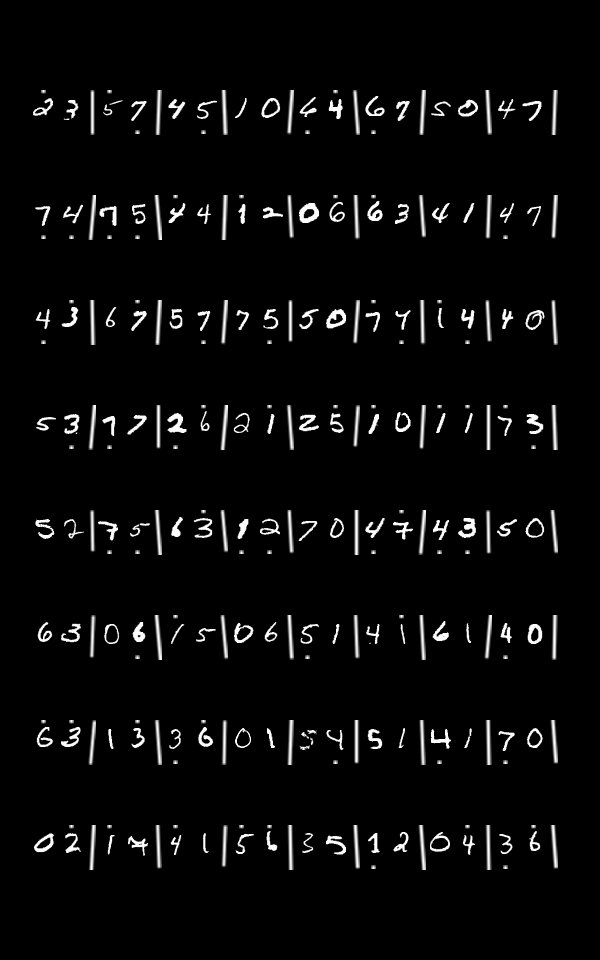 2 3 | 5 7 | 4 5 | 1 0 | 6 4 | 6 7 | 5 0 | 4 7 |
7 4 | 7 5 | 4 4 | 1 2 | 0 6 | 6 3 | 4 1 | 4 7 |
4 3 | 6 7 | 5 7 | 7 5 | 5 0 | 7 7 | 1 4 | 4 0 |
5 3 | 7 7 | 2 6 | 2 1 | 2 5 | 1 0 | 1 1 | 7 3 |
5 2 | 7 5 | 6 3 | 1 2 | 7 0 | 4 7 | 4 3 | 5 0 |
6 3 | 0 6 | 1 5 | 0 6 | 5 1 | 4 1 | 6 1 | 4 0 |
6 3 | 1 3 | 3 6 | 0 1 | 5 4 | 5 1 | 4 1 | 7 0 |
0 2 | 1 7 | 4 1 | 5 6 | 3 5 | 1 2 | 0 4 | 3 6 |